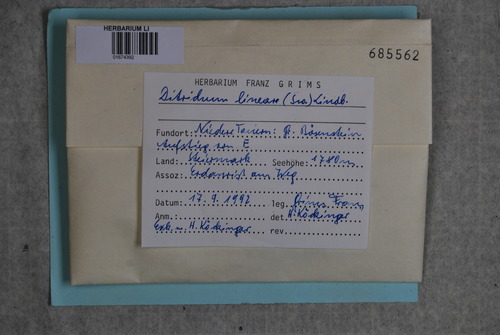 HERBARIUM LI
01674392
685562
HERBARIUM FRANZ GRIMS
Ditrichum lineare (Sw.) Lindb.
Fundort: Niedere Tauern: gr. Bösenstein
Aufstieg von E
Land: Steiermark Seehöhe: 1780m
Assoz: Erdanriß am Weg
Datum: 17.9.1992 leg. Grims Franz
Anm. det. H. Köckinger
Exk. H. Köckinger rev.